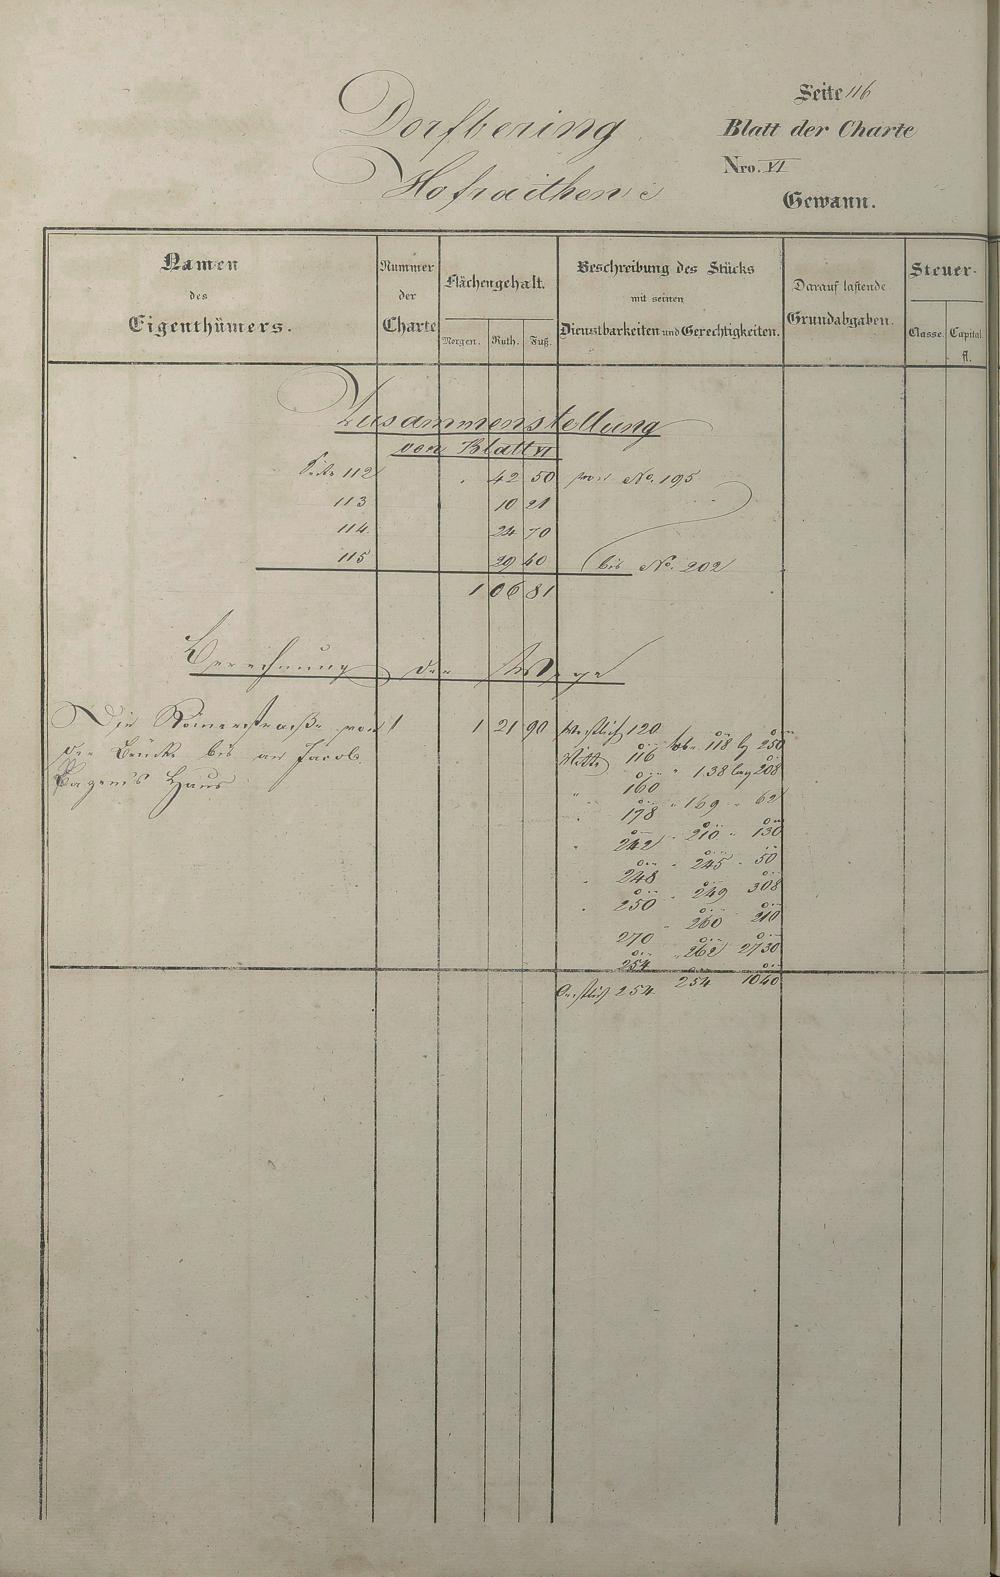 Seite 116
Dorfbering
Blatt der Charte
Nro. VI
Hofraithen
Gewann.
Namen
des
Eigenthümers.
Nummer
der
Charte
Flächengehalt.
Morgen. Ruth. Fuß.
Beschreibung des Stücks
mit seinen
Dienstbarkeiten und Gerechtigkeiten.
Darauf lastende
Grundabgaben.
Steuer-
Classe. Capital.
fl.
Zusammenstellung
von Blatt VI
Seite 112 . 42 50 von No. 195
113 10 21
114 24 70
115 29 40 bis No. 202
1 06 81
Berechnung der Wege
Die Römerstraße von 1 1 21 90 Westlich 120
der Brücke bis an Jacob
Haus
Mitte 116 118 lg 250
" 160 " 138 lang 208
" 178 " 169 " 62
" 242 " 210 " 130
" 248 " 245 " 50
" 250 " 249 308
270 " 260 210
254 " 262 2730
Oestlich 254 254 1040